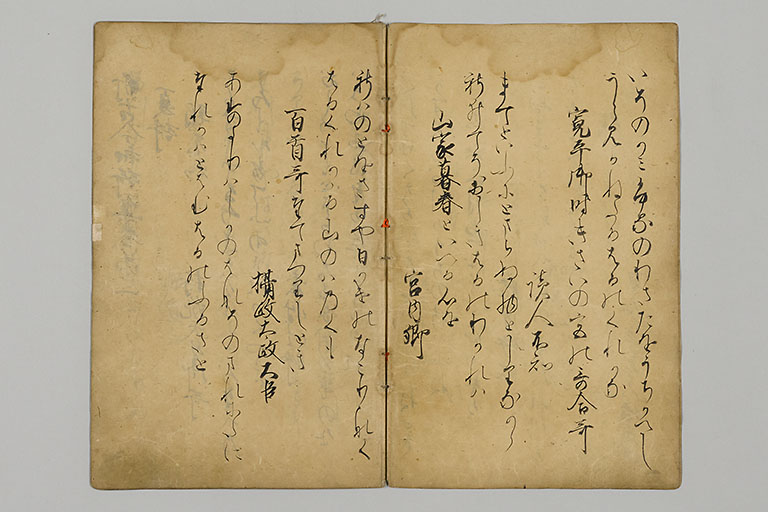 いそのかみふるのわさたをうちかへし
うらみかねたるはるのくれかな
寛平御時きさいの宮の哥合哥
讀人不知
まてといふにとまらぬ物としりなから
しゐてそおしきはるのわかれは
山家暮春といへる心を
宮内卿
柴のとをさすや日かけのなこりなく
はるくれかゝる山のはのくも
百首哥たてまつりしとき
攝政太政大臣
あすよりはしかのはなそのまれにたに
たれかはとはむはるのふるさと